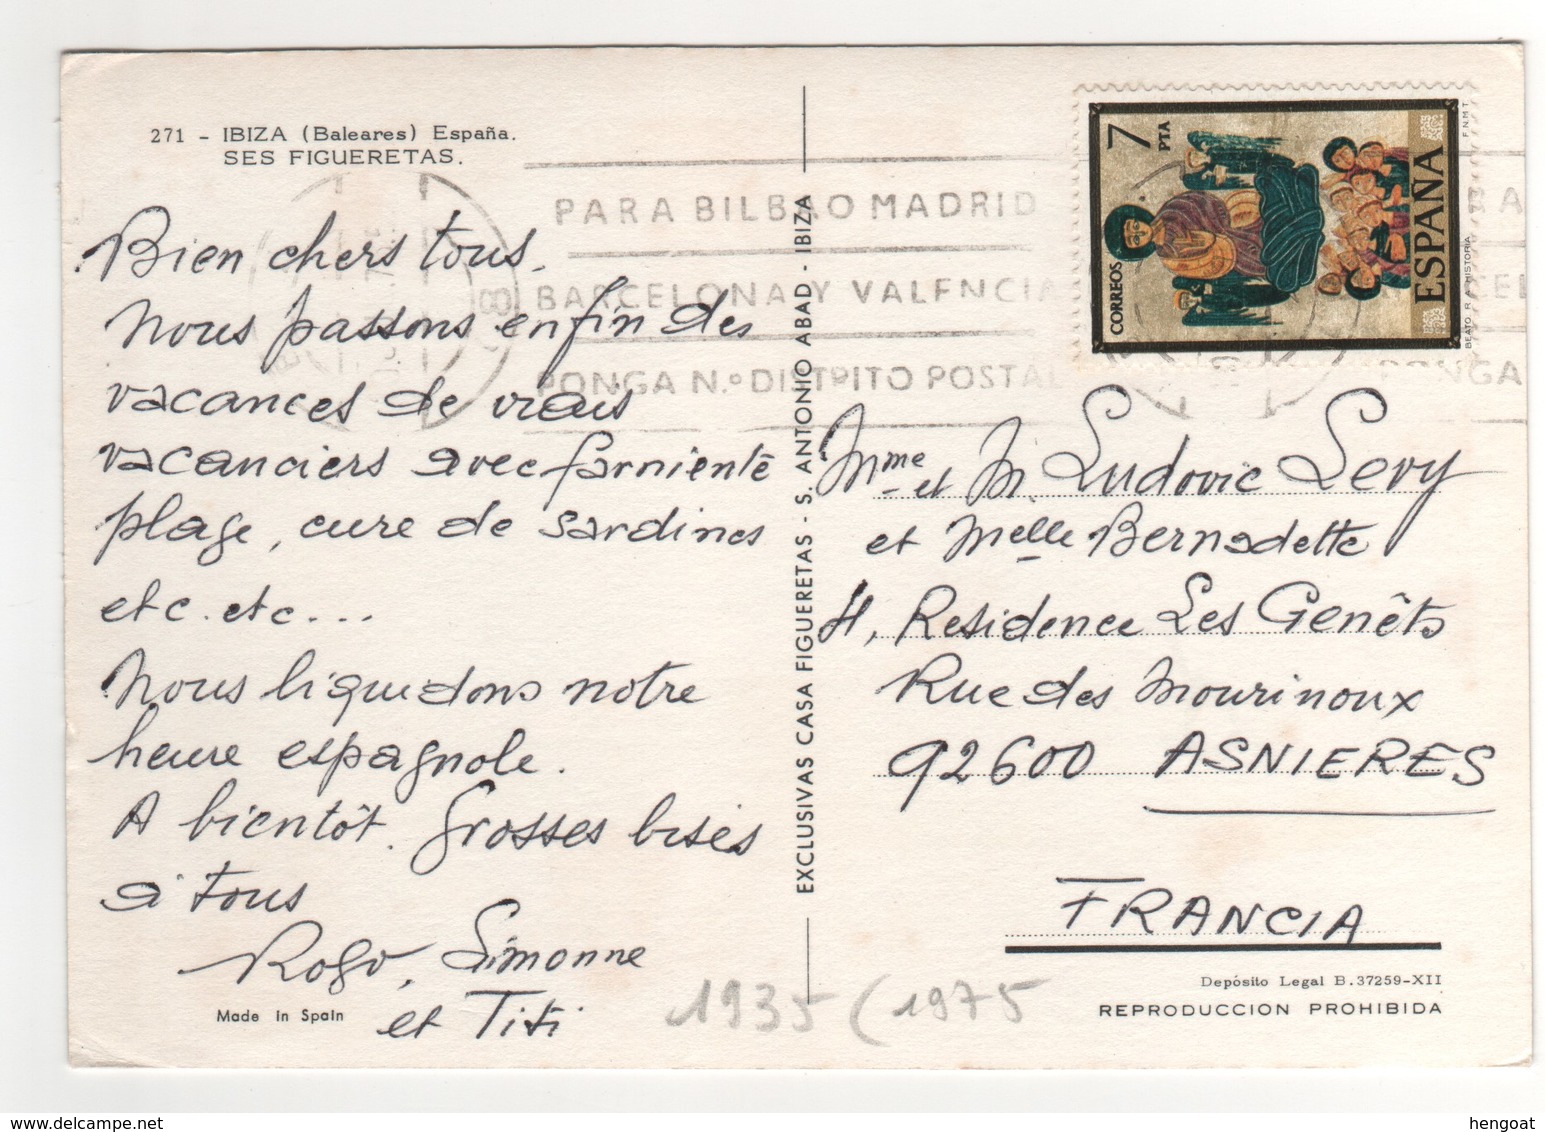 271 - IBIZA (Baleares) España.
SES FIGUERETAS.
Bien chers tous.
Nous passons enfin des
vacances de vrais
vacanciers avec farniente
plage, cure de sardines
etc. etc...
Nous liquidons notre
heure espagnole.
A bientôt. Grosses bises
à tous
Rogo, Simonne
et Titi
Made in Spain
EXCLUSIVAS CASA FIGUERETAS - S. ANTONIO ABAD - IBIZA
PARA BILBAO MADRID
BARCELONA Y VALENCIA
PONGA N.º DISTRITO POSTAL
7 PTA
CORREOS
ESPAÑA
F.N.M.T.
Mme et M. Ludovic Levy
et Melle Bernadette
Residence Les Genêts
Rue des Mourinoux
92600 ASNIERES
FRANCIA
Depósito Legal B. 37259-XII
REPRODUCCION PROHIBIDA
1935 (1975
www.delcampe.net
hengoat